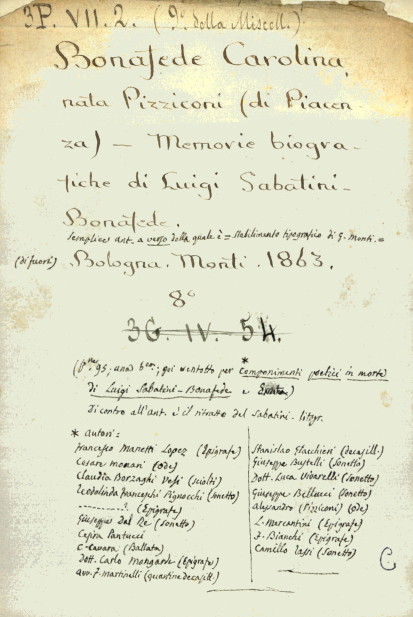 3P. VII. 2. (9° della Miscell.)
Bonafede Carolina,
nata Pizziconi (di Piacen-
za) — Memorie biogra-
fiche di Luigi Sabatini-
Bonafede.
Semplice ant. a verso della quale è = Stabilimento tipografico di G. Monti. =
(di fuori) Bologna. Monti. 1863.
8°
36. IV. 54.
95. una
poi ventotto per * componimenti poetici in morte
di Luigi Sabatini-Bonafede e
Di contro all'ant. è il ritratto del Sabatini - litogr.
* autori =
Francesco Manetti Lopez (Epigrafe)
Cesare Monari (Ode)
Claudia Borzaghi Vesi (sciolti)
Teodolinda Franceschi Pignocchi (Sonetto)
---------? (Epigrafe)
Giuseppe Dal Re (Sonetto)
Cesira Pantucci
C. Cavara (Ballata)
Dott. Carlo Mongardi (Epigrafe)
avv. F. Martinelli (quartine decasill.)
Stanislao Giacchieri (decasill.)
Giuseppe Bustelli (Sonetto)
Dott. Luca Vivarelli (Sonetto)
Giuseppe Bellucci (Sonetto)
Alesandro (Pizziconi) (Ode)
L. Mercantini (Epigrafe)
J. Bianchi (Epigrafe)
Camillo (Sonetto)
C